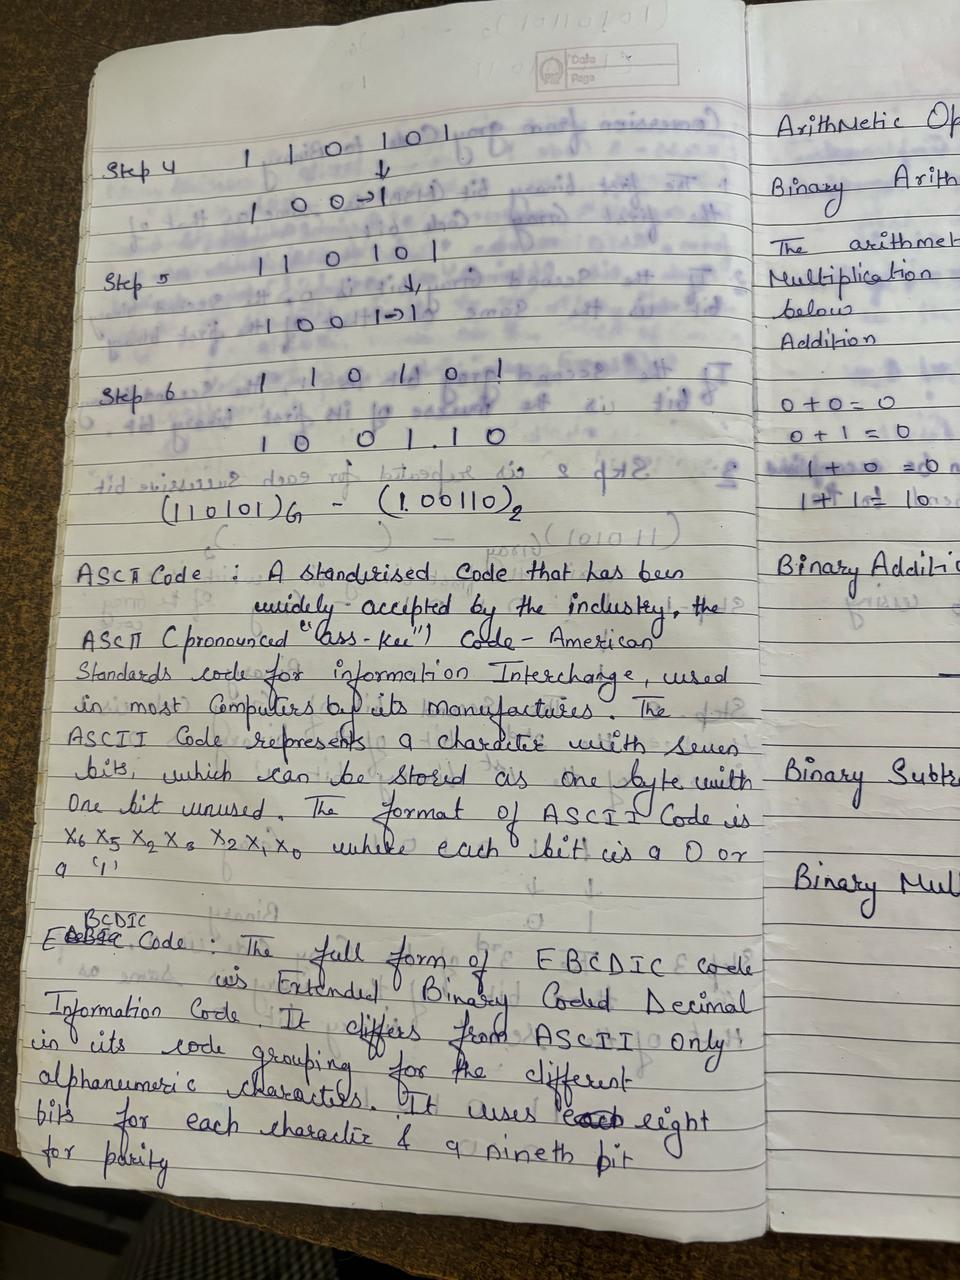 Date
Page
Step 4 1 1 0 1 0 1
1 0 0 → 1
Step 5 1 1 0 1 0 1
1 0 0 1 → 1
Step 6 1 1 0 1 0 1
1 0 0 1 . 1 0
(110101)G - (1.00110)2
ASCII Code : A standerised Code that has been
widely accepted by the industry, the
ASCII (pronounced "ass-kee") Code - American
Standards code for information Interchange, used
in most Computers by its manufactures. The
ASCII Code represents a character with seven
bits, which can be stored as one byte with
One bit unused. The format of ASCII Code is
X6 X5 X2 X3 X2 X1 X0 where each bit is a 0 or
a '1'
EBCDIC Code : The full form of EBCDIC code
is Extended Binary Coded Decimal
Information Code. It differs from ASCII Only
in its code grouping for the different
alphanumeric characters. It uses eight
bits for each character & a nineth bit
for parity
Arithmetic Op
Binary Arith
The arithmet
Multiplication
below
Addition
0 + 0 = 0
0 + 1 = 0
1 + 0 = 0
1 + 1 = 10
Binary Additi
Binary Subtr
Binary Mul